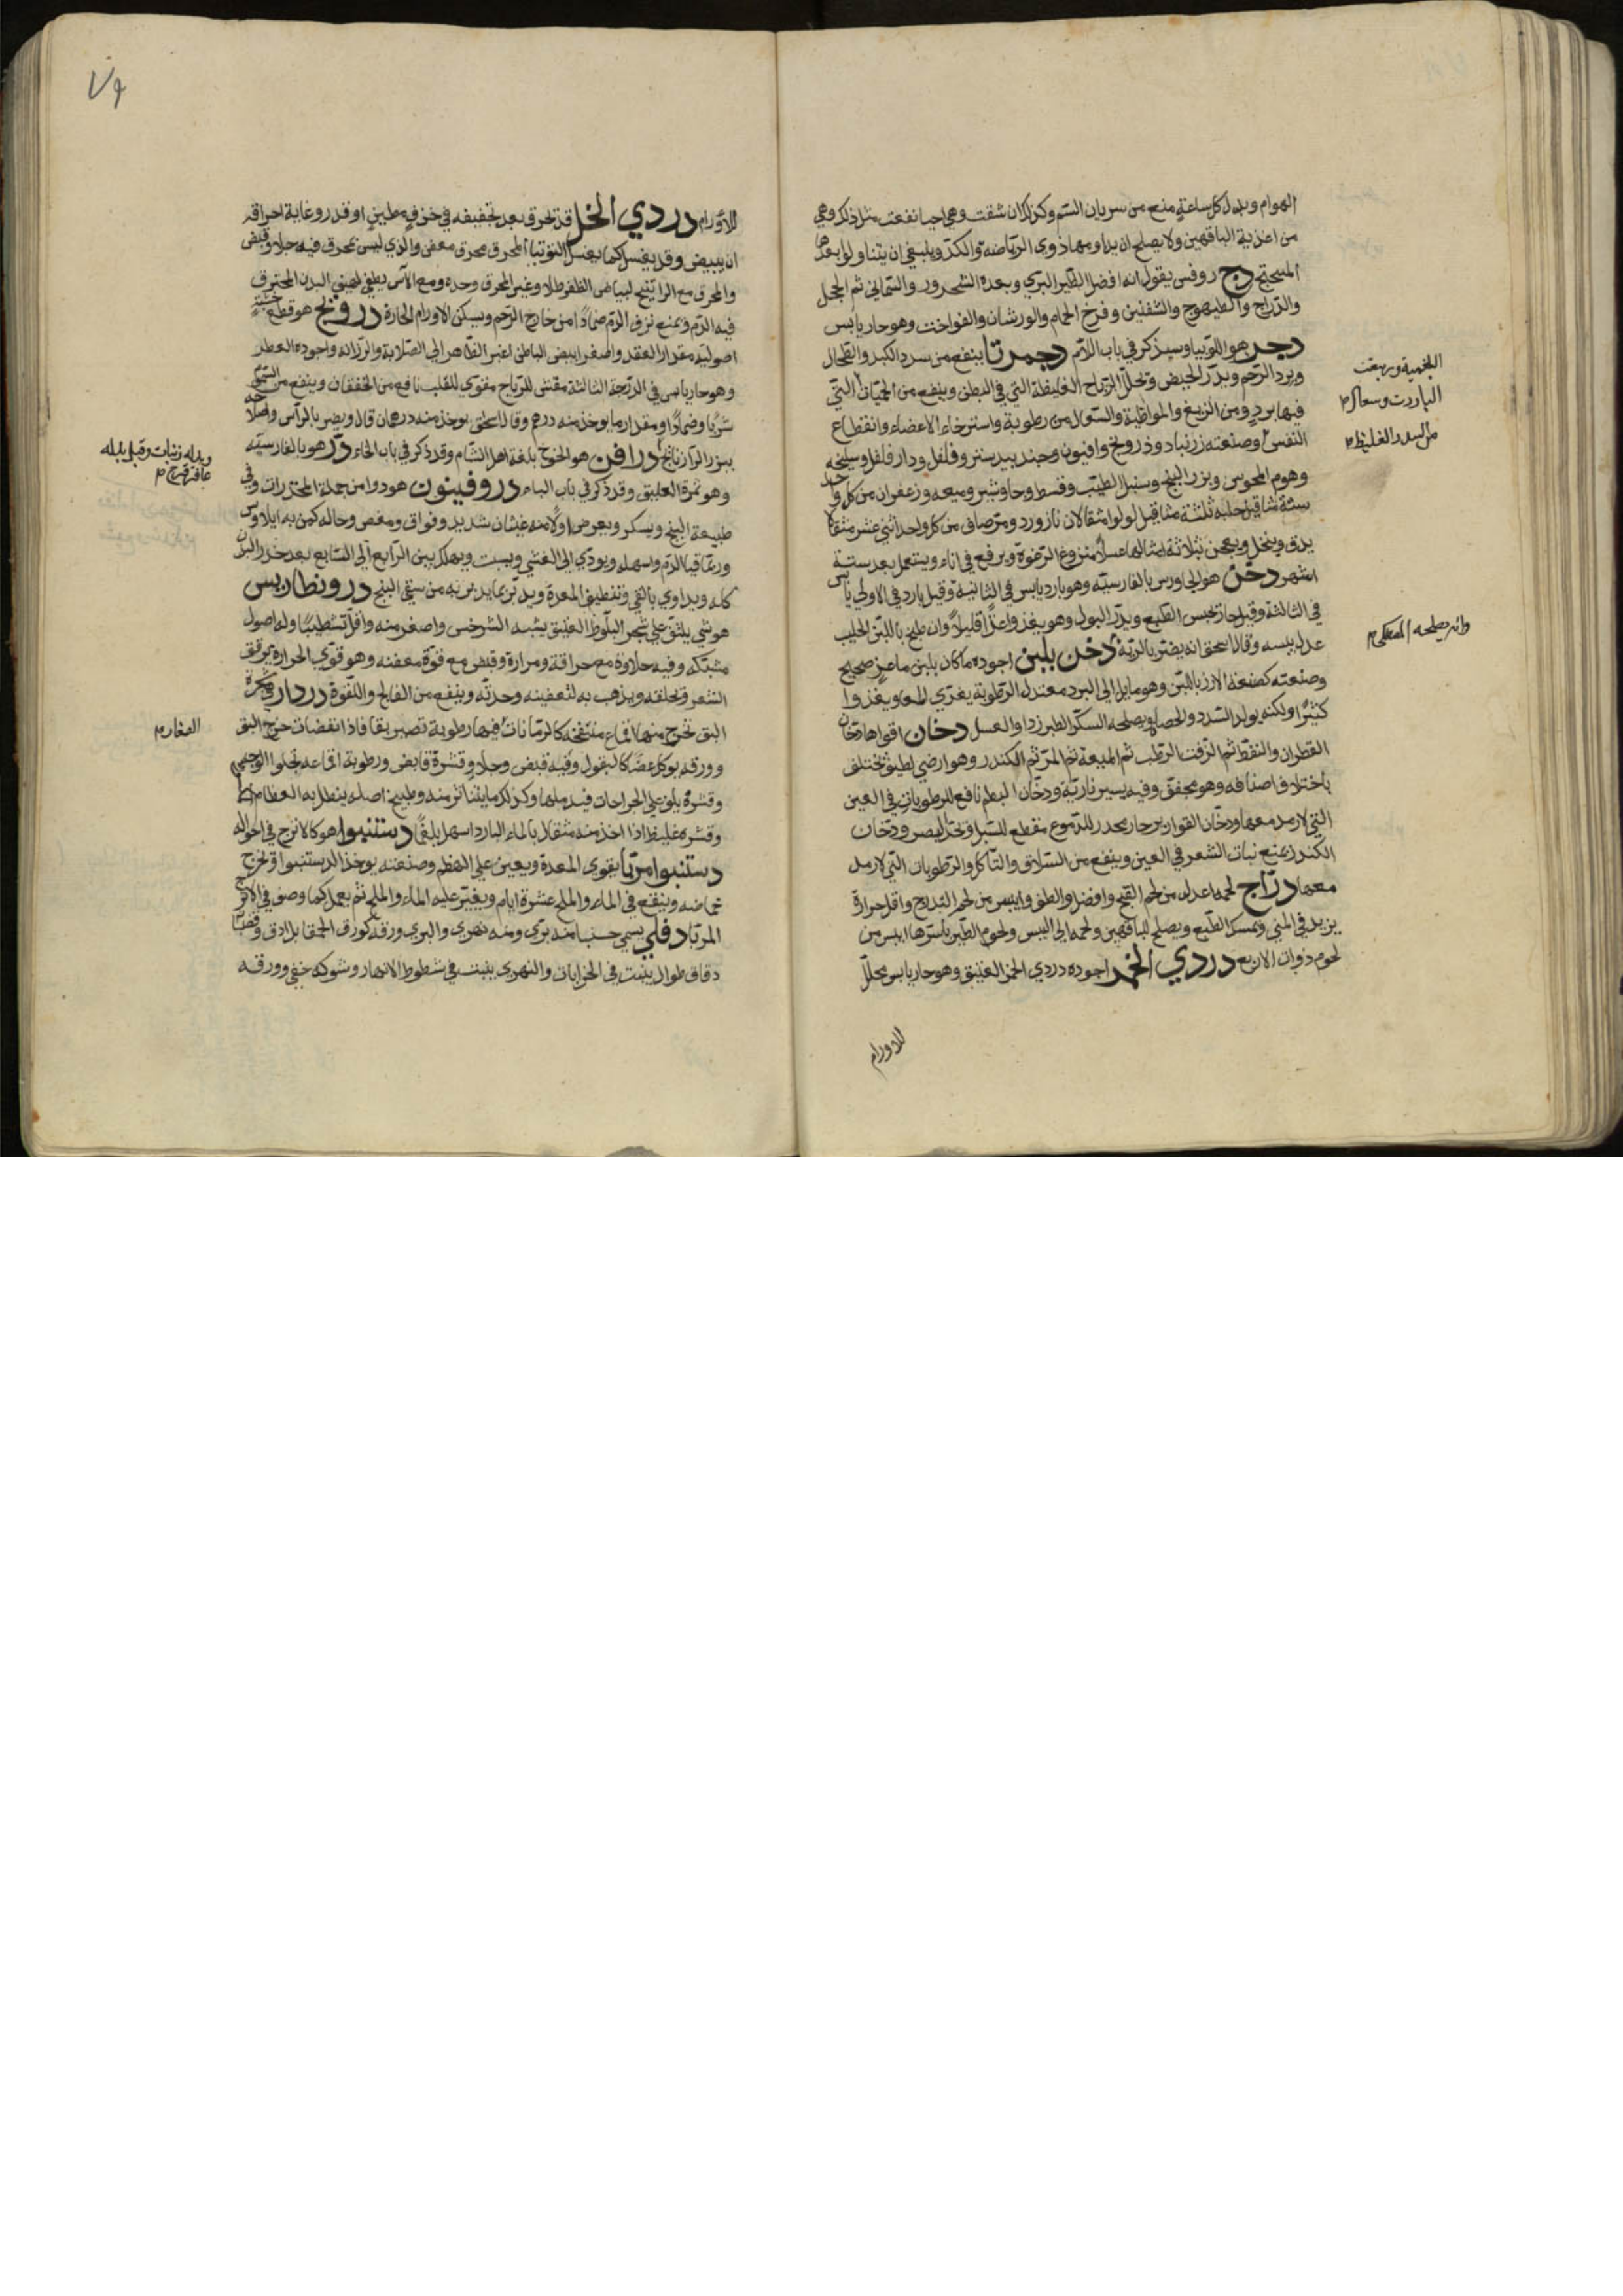 الهوام وبدل كل ساعة منع من سريان السم وكذلك ان شقت وهي احيا نفعت مثل ذلك وهي
من اغذية الناقهين ولا يصلح ان يداومها ذوي الرياضة والكد وينبغي ان يتناولوا بعدها
الميبختج دج روفس يقول انه افضل الطير البري وبعده الشحرور والسماني ثم الحجل
والدراج والطيهوج والشفنين وفرخ الحمام والورشان والفواخت وهو حار يابس
دجر هو اللوبيا وسيذكر في باب اللام دجمرتا ينفع من سدد الكبد والطحال
وبرد الرحم ويدر الحيض وتحلل الرياح الغليظة التي في البطن وينفع من الحميات التي
فيها برد ومن الربع والمواظبة والسعال من رطوبة واسترخاء الاعضاء وانقطاع
النفس وصنعته زرنباد ودرونج وافيون وجندبيدستر وفلفل ودار فلفل وسليخه
وهوم المجوس وبزر البنج وسنبل الطيب وقسط وجاوشير وميعه وزعفران من كل واحد
ستة مثاقيل حلبه ثلثة مثاقيل لولو مثقالان نازورد ومر صافي من كل واحد اثني عشر مثقالا
يدق وينخل ويعجن بثلاثة امثالها عسلا منزوع الرغوة ويرفع في اناء ويستعمل بعد ستة
اشهر دخن هو الجاورس بالفارسيه وهو بارد يابس في الثانية وقيل بارد في الاولي يابس
في الثالثة وقيل حار يحبس الطبع ويدر البول وهو يغذوا غذا قليلا وان طبخ باللبن الحليب
عدل يبسه وقال اسحق انه يضر بالرئة دخن بلبن اجوده ما كان بلبن ماعز صحيح
وصنعته كصنعة الارز باللبن وهو مايل الي البرد معتدل الرطوبة يغري المعا ويغذوا
كثيرا ولكنه يولد السدد والحصا ويصلحه السكر الطبرزد او العسل دخان اقواها دخان
القطران والنفط ثم الزفت الرطب ثم الميعة ثم المر ثم الكندر وهو ارضي لطيف يختلف
باختلاف اصنافه وهو مجفف وفيه يسير نارية ودخان البطم نافع للرطوبات في العين
التي لا رمد معها ودخان القوارير حار يحدر للدموع مقطع للسبل وتحد البصر ودخان
الكندر يمنع نبات الشعر في العين وينفع من السلاق والتاكل والرطوبات التي لا رمد
معها دراج لحمه اعدل من لحم القبج وافضل والطف وايبس من لحم التدرج واقل حرارة
يزيد في المني ويمسك الطبع ويصلح للناقهين ولحمه الي اليبس ولحوم الطير باسرها ايبس من
لحوم ذوات الاربع دردي الخمر اجوده دردي الخمر العتيق وهو حار يابس محلل
للاورام
البلغمية وربعت
الباردت وسعال م
من السدد الغليظ م
وانه يصلحه المصطكي م
٧٩
للاورام دردي الخل قد تحرق بعد تجفيفه في خزف مطين او قدر وغاية احراقه
ان يبيض وقد يغسل كما يغسل التوتيا المحرق محرق معفن والذي ليس بمحرق فيه جلا وقبض
والمحرق مع الراتينج لبياض الظفر طلا وغير المحرق وحده ومع الآس يطفي لهيب البدن المحترق
فيه الدم ويمنع نزف الدم ضمادا من خارج الرحم ويسكن الاورام الحارة درونج هو قطع خشبية
اصوليه مقدار العقد واصغر ابيض الباطن اغبر الظاهر الي الصلابة والرزانه واجوده العطر
وهو حار يابس في الدرجة الثالثة مفش للرياح مقوي للقلب نافع من الخفقان وينفع من السموم
شربا وضمادا ومقدار ما يوخذ منه درهم وقال اسحق يوخذ منه درهمان قال ويضر بالراس واصلاحه
ببزر الرازيانج دراقن هو الخوخ بلغة اهل الشام وقد ذكر في باب الخاء در هو بالفارسيه
وهو ثمرة العليق وقد ذكر في باب الباء دروفينون هو دوا من جملة المخدرات وفي
طبيعة البنج ويسكر ويعرض اولا منه غثيان شديد وفواق ومغص وحاله كمن به ايلاوس
وربما قيا الدم واسهله ويودي الي الغشي ويسبت ويهلك بين الرابع الي السابع بعد خدر البدن
كله ويداوي بالقي وتنظيف المعدة ويدبر بما يدبر به من سقي البنج درونطارس
هو شي يلتف علي شجر البلوط العتيق يشبه السرخس واصغر منه واقل تشطيبا وله اصول
مشتبكه وفيه حلاوة مع حراقة ومرارة وقبض مع قوة معفنه وهو قوي الحرارة يرقق
الشعر وتحلقه ويذهب به لتعفينه وحدته وينفع من الفالج واللقوة دردار شجرة
البق تخرج منها اقماع منتفخه كالرمانات فيها رطوبة تصير بقا فاذا انفضات خرج البق
وورقه يوكل غضا كالبقول وفيه قبض وجلا وقشرة قابض ورطوبة اقماعه تجلوا الوجه
وقشره يلف علي الجراحات فيدملها وكذلك ما يتناثر منه وطبيخ اصله ينطل به العظام
وقشره غليظ اذا اخذ منه مثقال بالماء البارد اسهل بلغما دستنبوا هو كالاترج في احواله
دستنبوا مربا يقوي المعدة ويعين علي الهضم وصنعته يوخذ الدستنبوا وتخرج
حماضه وينقع في الماء والملح عشرة ايام ويغير عليه الماء والملح ثم يعمل كما وصف في الاترج
المربا دفلي يسمي حبنا منه بري ومنه نهري والبري ورقه كورق الحمقا بل ادق وقضبانه
دقاق طوال ينبت في الخرابات والنهري ينبت في شطوط الانهار وشوكه خفي وورقه
وبدله زرنباد وقيل بدله
عاقرقرحا م
الصغار م